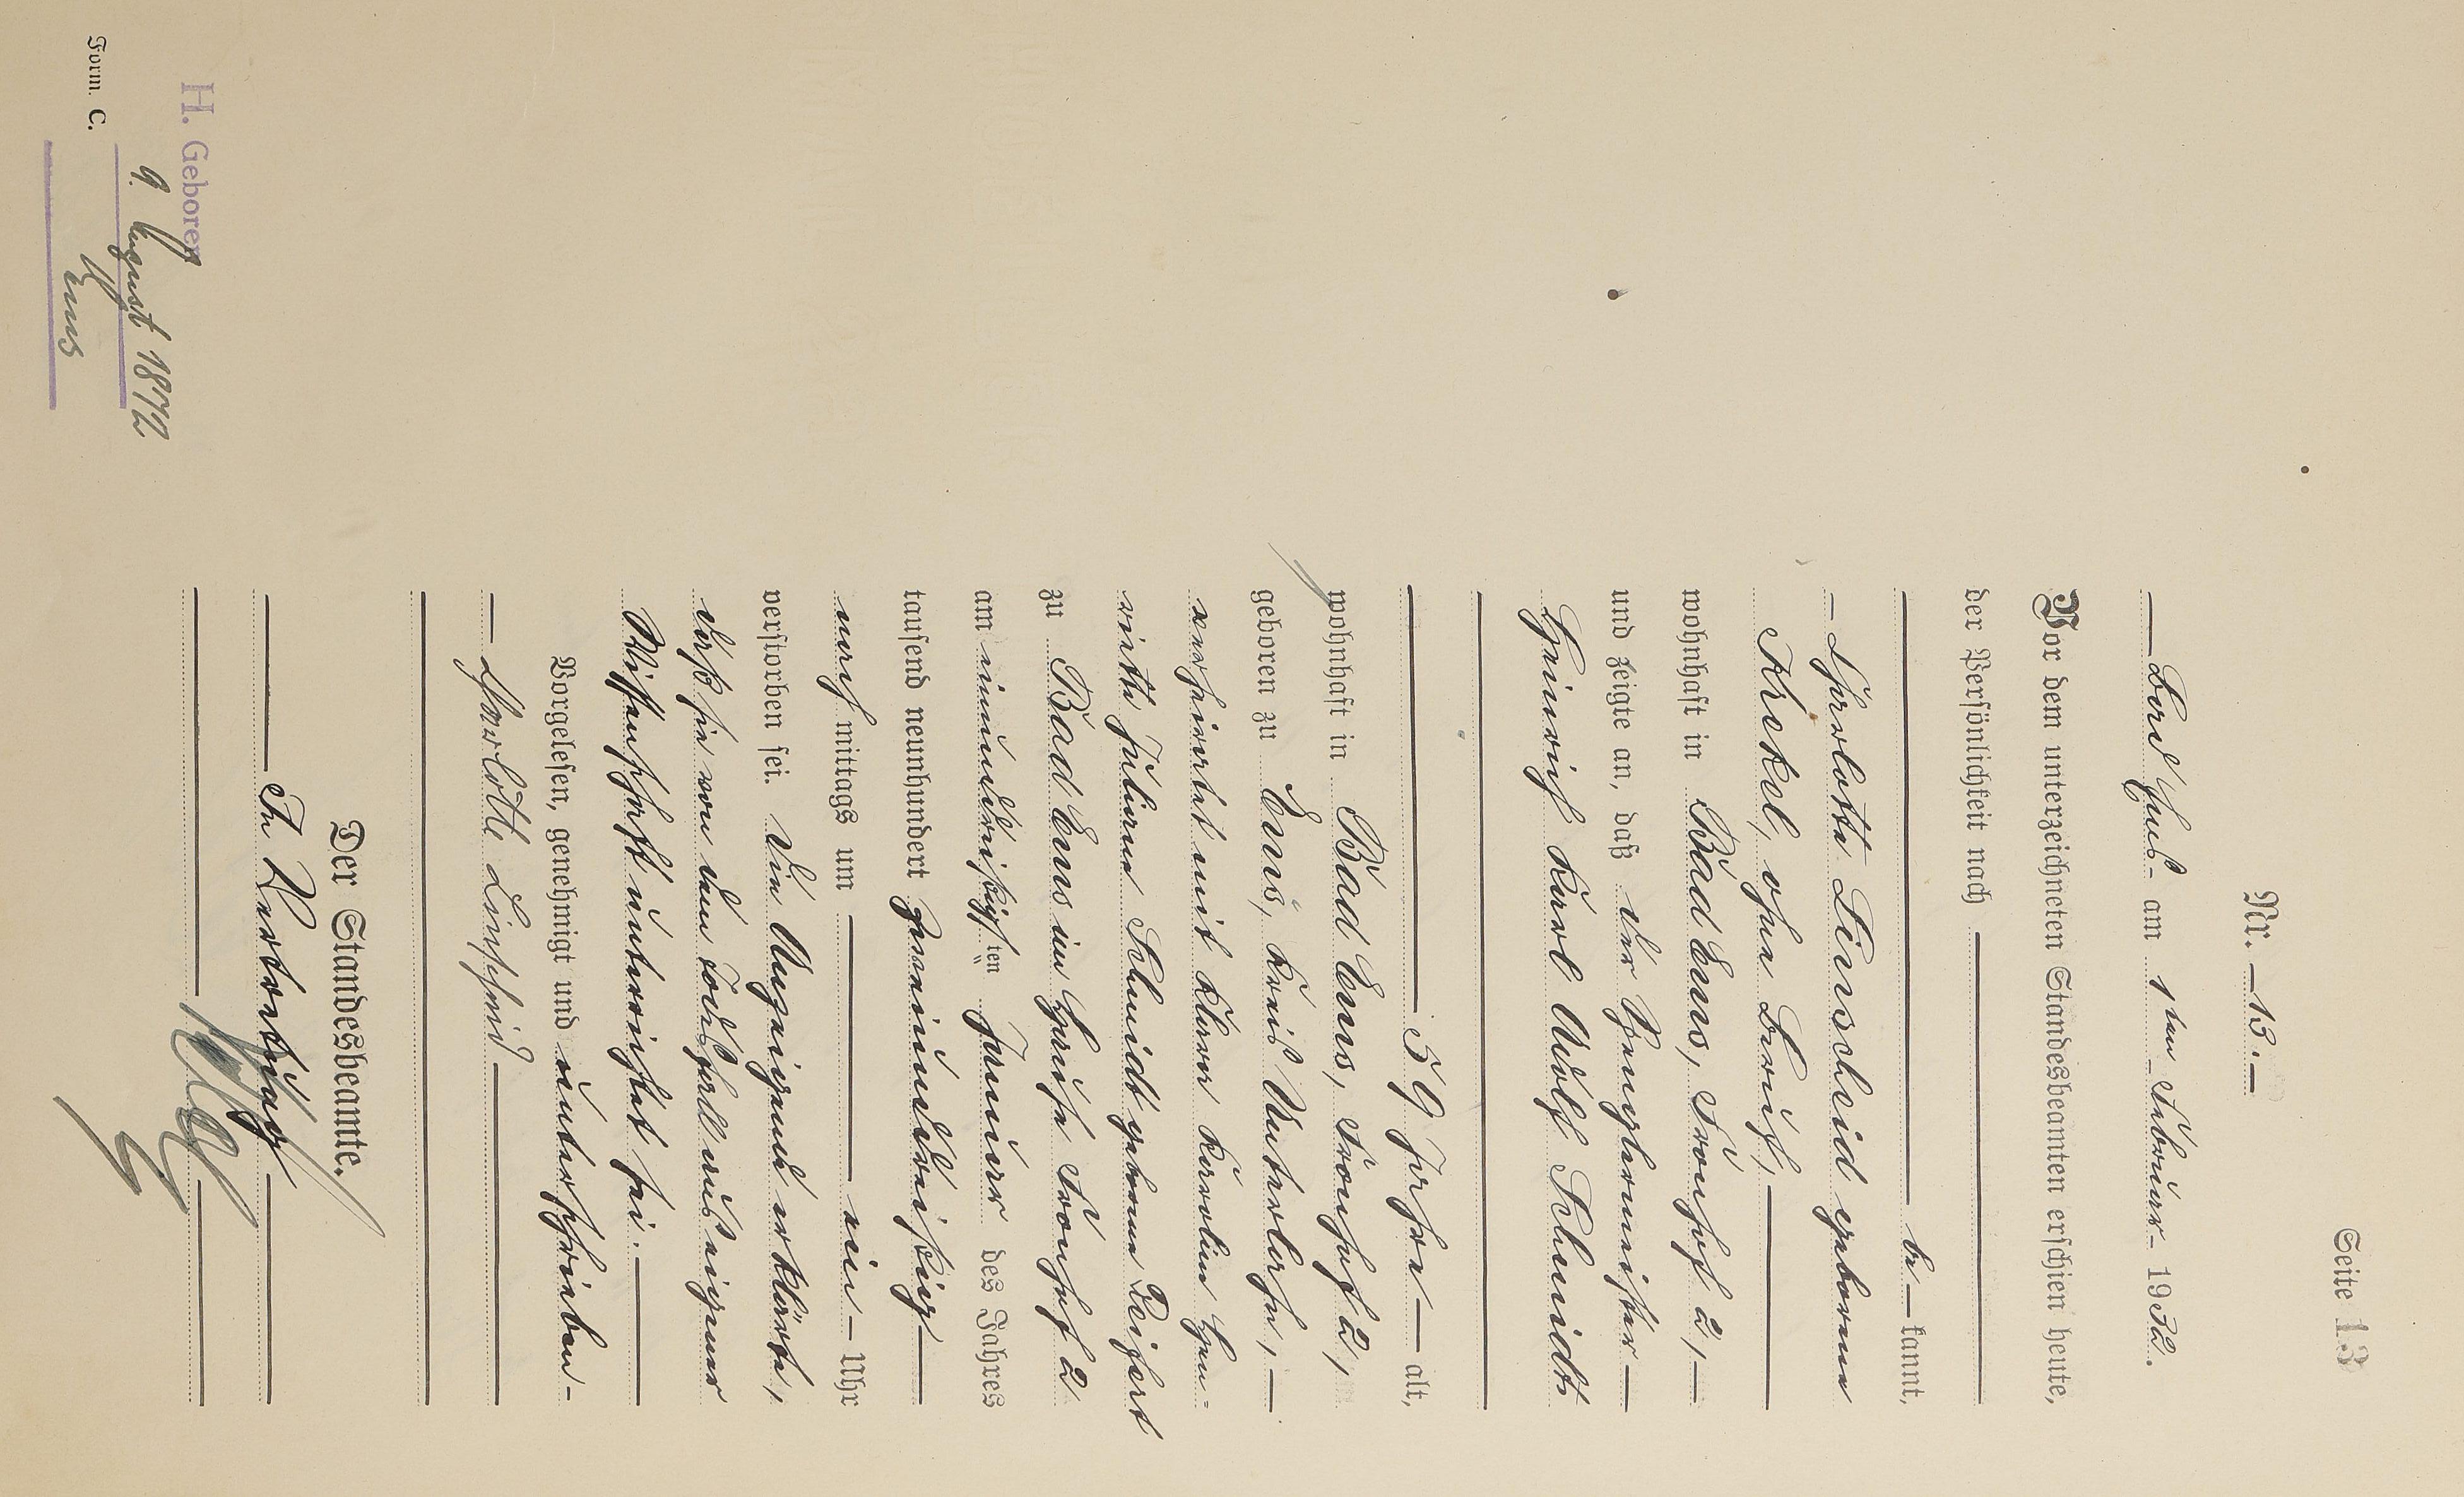 Seite 13
Nr. 13.
Bad Ems am 1ten Februar 1932.
Vor dem unterzeichneten Standesbeamten erschien heute,
der Persönlichkeit nach
be kannt,
Charlotte Linscheid geborene
Krekel, ohne Beruf,
wohnhaft in Bad Ems, 2,
und zeigte an, daß der
Heinrich Karl Adolf Schmidt
59 Jahre alt,
wohnhaft in Bad Ems, 2,
geboren zu Ems, Kreis Unterlahn,
verheiratet mit Klara Karolin Hen-
riette Juliane Schmidt geborene
zu Bad Ems im Hause 2
am einunddreißigsten Januar des Jahres
tausend neunhundert zweiunddreißig
nach mittags um ein Uhr
verstorben sei. Die Anzeigende erklärte,
daß sie von dem Todesfall aus eigener
Wissenschaft unterrichtet sei.
Vorgelesen, genehmigt und unterschrieben
Charlotte Linscheid
Der Standesbeamte.
In Vertretung
H. Geboren
9. August 1872
Ems
Form. C.